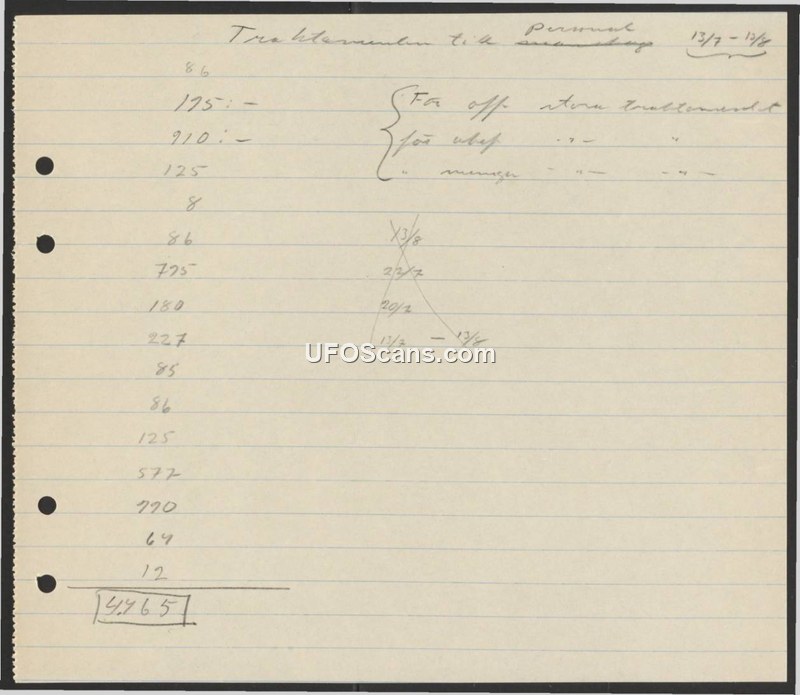 Traktamenten till Personal manskap 13/7 - 13/8
86
195:- För off. stora traktamentet
910:- för ubef -"- "
125 " meniga - "- -"-
8
86 13/8
795 23/7
180 20/7
227 13/7 - 13/8
85
86
125
577
990
64
12
4465
UFOScans.com